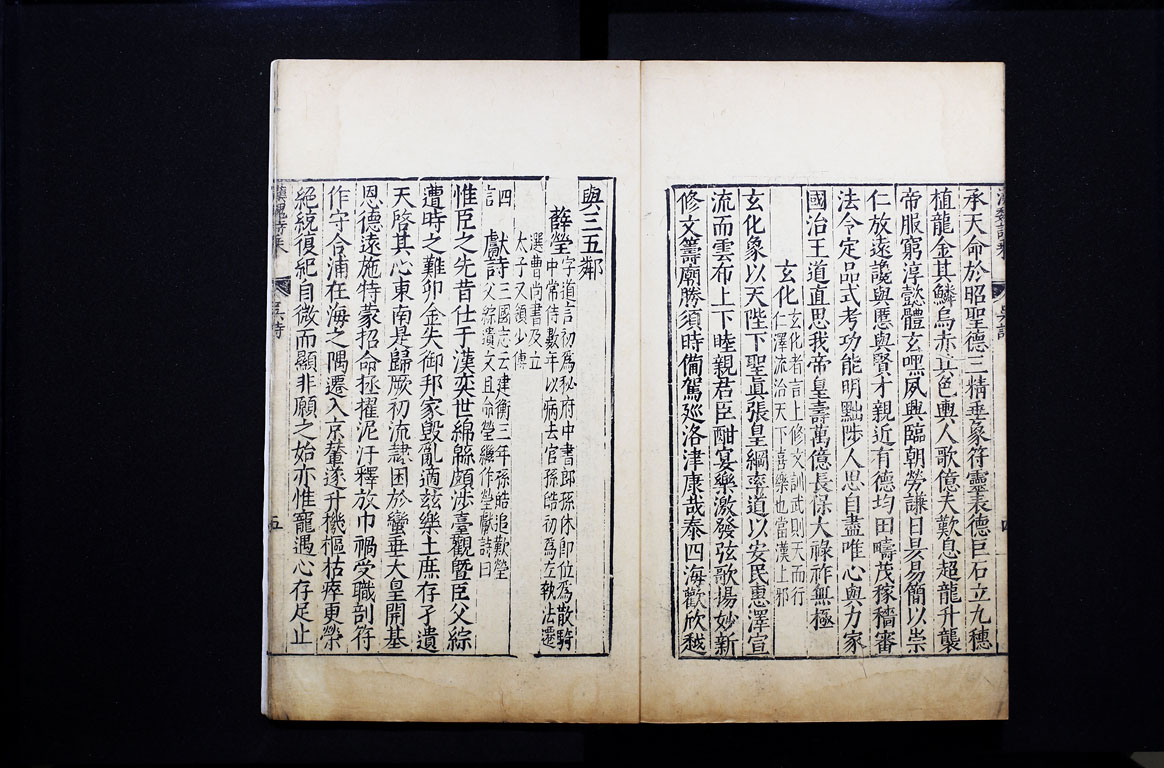 承天命於昭聖德三精垂象符靈表德巨石立九穗
植龍金其鱗烏赤其色輿人歌億夫歎息超龍升襲
帝服窮淳懿體玄嘿夙興臨朝勞謙日昃易簡以崇
仁放遠讒與慝舉賢才親近有德均田疇茂稼穡審
法令定品式考功能明黜陟人思自盡唯心與力家
國治王道直思我帝皇壽萬億長保大祿祚無極
玄化
玄化者言上修文訓武則天而行
仁澤流洽天下喜樂也當漢上邪
玄化象以天陛下聖真張皇綱率道以安民惠澤宣
流而雲布上下睦親君臣酣宴樂激發弦歌揚妙新
修文籌廟勝須時備駕巡洛津康哉泰四海歡欣越
與三五鄰
薛瑩
字道言初為秘府中書郎孫休即位為散騎
中常侍數年以病去官孫皓初為左執法遷
選曹尚書及立
太子又領少傅
獻詩
三國志云建衡三年孫皓追歎瑩
父綜遺文且命瑩繼作瑩獻詩曰
四言
惟臣之先昔仕于漢奕世綿緜頗涉臺觀暨臣父綜
遭時之難卯金失御邦家毀亂適茲樂土庶存孑遺
天啓其心東南是歸厥初流隸困於蠻垂大皇開基
恩德遠施特蒙招命拯擢泥汙釋放巾褐受職剖符
作守合浦在海之隅遷入京輦遂升機樞枯瘁更榮
絕統復紀自微而顯非願之始亦惟寵遇心存足止
漢魏詩乘
吳詩
五